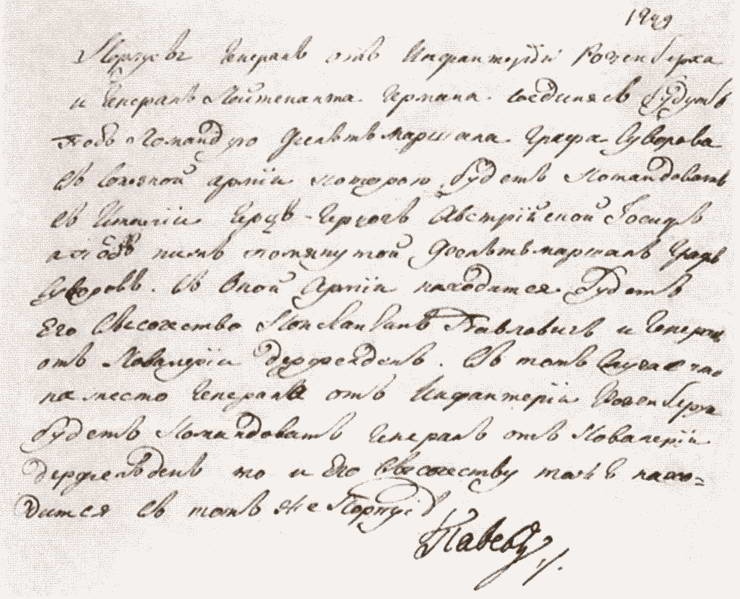 1799
Корпусъ Генерала отъ Инфантерiи Розенберха
и Генералъ Лейтенанта Германа. соединясь будутъ
подъ командую Фельтъмаршала Графа Суворова
въ союзной армiи которою будетъ командовать
въ Италiи Ерцъ-Герцогъ Австрiйской Iосифъ
а подъ нимъ помянутой Фельтъмаршалъ Графъ
Суворовъ. въ оной Армiи находится будетъ
Его Высочество Константинъ Павловичъ и Генералъ
отъ Кавалерiи Дерфельденъ. въ томъ случае что
на место Генерала отъ Инфантерiи Розенберха
будетъ командовать Генералъ отъ Кавалерiи
Дерфельденъ то и Его Высочеству тожъ нахо=
дится въ томъ же Корпусѣ
Павелъ